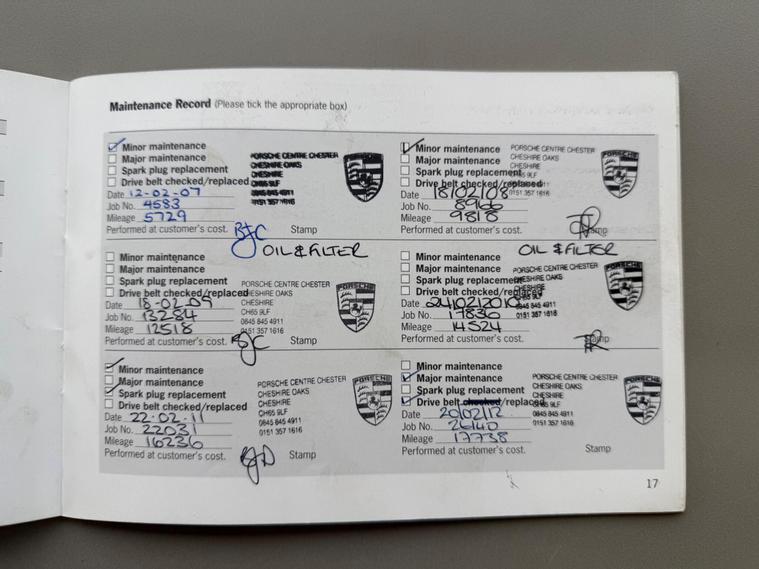 Maintenance Record (Please tick the appropriate box)
Minor maintenance
Major maintenance
Spark plug replacement
Drive belt checked/replaced
Date 12-02-07
Job No. 4583
Mileage 5729
Performed at customer's cost. BJC
PORSCHE CENTRE CHESTER
CHESHIRE OAKS
CHESHIRE
CH65 9LF
0845 845 4911
0151 357 1616
PORSCHE
Minor maintenance
Major maintenance
Spark plug replacement
Drive belt checked/replaced
Date 18/02/08
Job No. 8966
Mileage 9818
Performed at customer's cost. Stamp
PORSCHE CENTRE CHESTER
CHESHIRE OAKS
CHESHIRE
CH65 9LF
0845 845 4911
0151 357 1616
PORSCHE
OIL & FILTER
Minor maintenance
Major maintenance
Spark plug replacement
Drive belt checked/replaced
Date 18-02-09
Job No. 13284
Mileage 12518
Performed at customer's cost. BJC Stamp
PORSCHE CENTRE CHESTER
CHESHIRE OAKS
CHESHIRE
CH65 9LF
0845 845 4911
0151 357 1616
PORSCHE
OIL & FILTER
Minor maintenance
Major maintenance
Spark plug replacement
Drive belt checked/replaced
Date 24/02/2010
Job No. 17836
Mileage 14524
Performed at customer's cost. Stamp
PORSCHE CENTRE CHESTER
CHESHIRE OAKS
CHESHIRE
CH65 9LF
0845 845 4911
0151 357 1616
PORSCHE
Minor maintenance
Major maintenance
Spark plug replacement
Drive belt checked/replaced
Date 22-02-11
Job No. 22031
Mileage 16236
Performed at customer's cost. Stamp
PORSCHE CENTRE CHESTER
CHESHIRE OAKS
CHESHIRE
CH65 9LF
0845 845 4911
0151 357 1616
PORSCHE
Minor maintenance
Major maintenance
Spark plug replacement
Drive belt checked/replaced
Date 20/02/12
Job No. 26140
Mileage 17738
Performed at customer's cost. Stamp
PORSCHE CENTRE CHESTER
CHESHIRE OAKS
CHESHIRE
CH65 9LF
0845 845 4911
0151 357 1616
PORSCHE
17